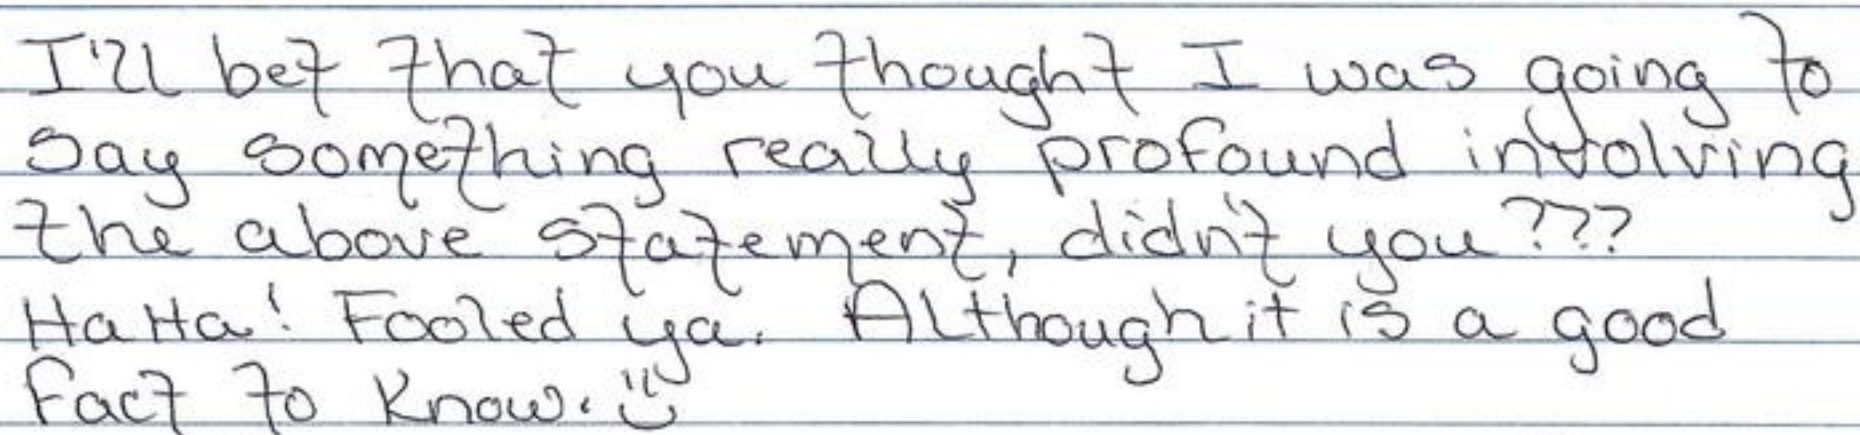 I'll bet that you thought I was going to
say something really profound involving
the above statement, didn't you???
HaHa! Fooled ya. Although it is a good
fact to know. ü